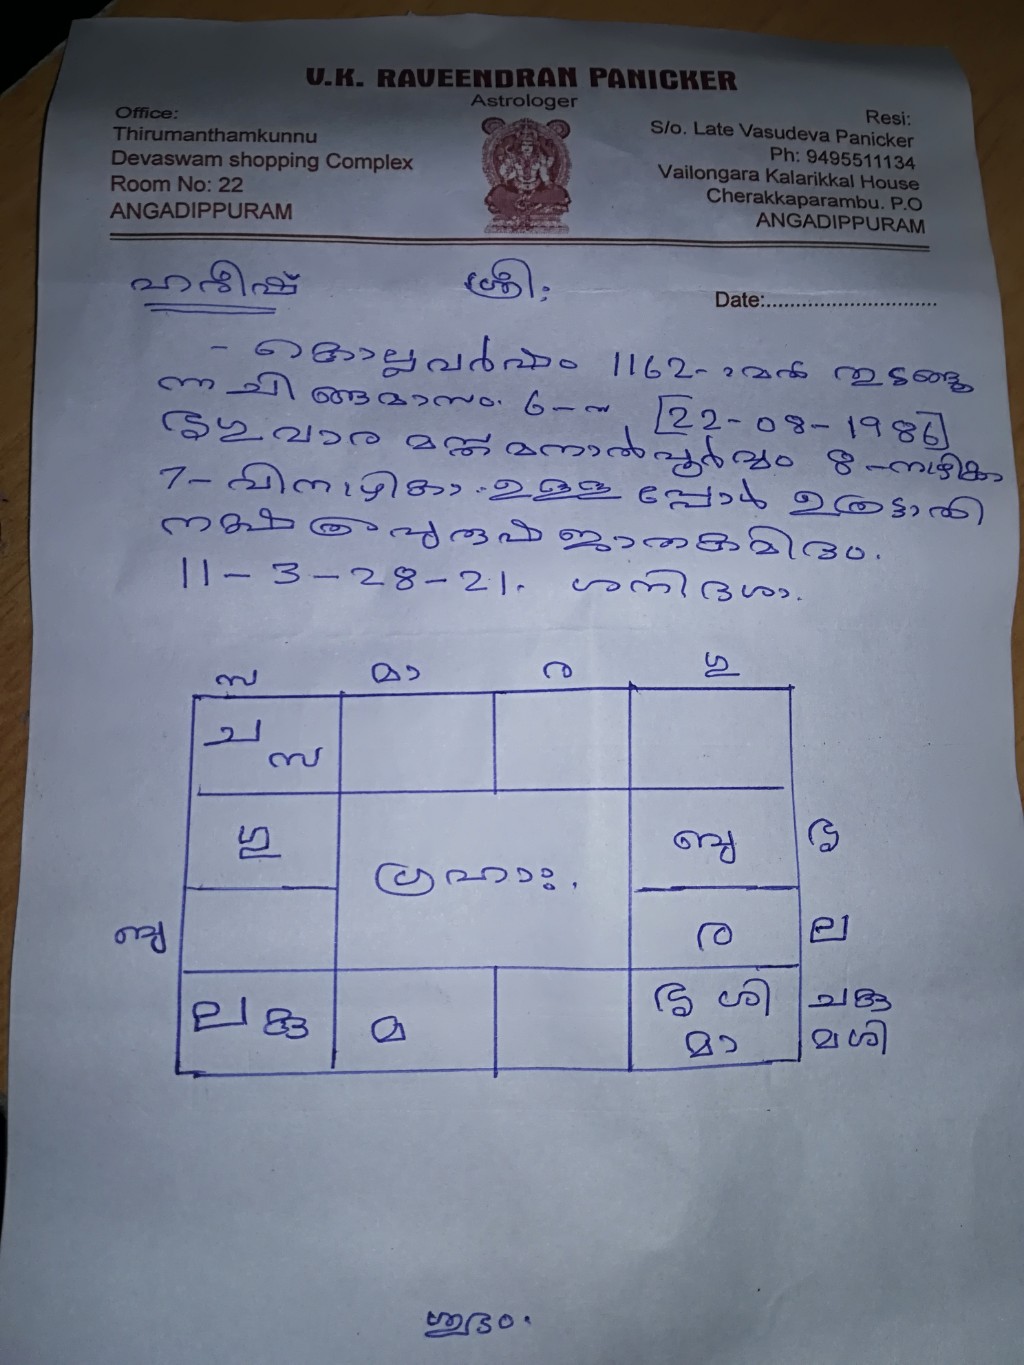 V.K. RAVEENDRAN PANICKER
Astrologer
Office:
Thirumanthamkunnu
Devaswam shopping Complex
Room No: 22
ANGADIPPURAM
Resi:
S/o. Late Vasudeva Panicker
Ph: 9495511134
Vailongara Kalarikkal House
Cherakkaparambu. P.O
ANGADIPPURAM
ഹരീഷ് ശ്രീ:
Date:..............................
- കൊല്ലവർഷം 1162-ാമത് തുടങ്ങു
ന്ന ചിങ്ങമാസം 6-ന [22-08-1986]
ഉള്ളപ്പോൾ ഉത്രട്ടാതി
നക്ഷത്ര പുരുഷജാതകമിദം.
11-3-28-21. ശനിദശാ.
സ മാ ര ഗു
ച
സ
ഗു ബു ശു
ഗ്രഹാഃ.
ബു ര ല
ല ങ്ങ മ ശു ശി ച ങ്ങ
മാ മ ശി
ശുഭം.